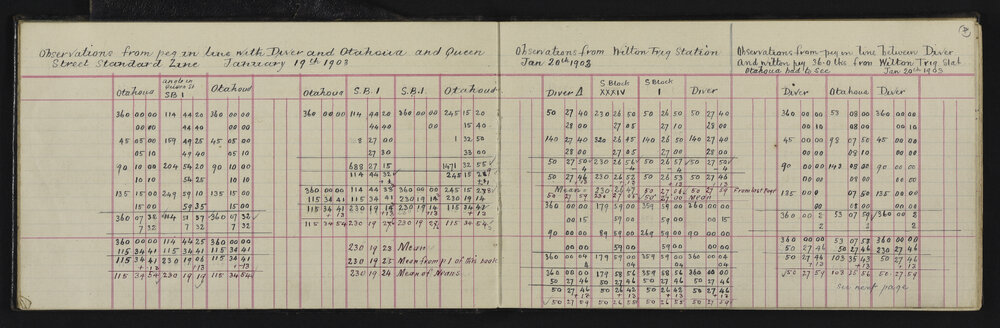 Observations from peg in line with Diver and Otahoua and Queen
Street Standard Line January 19th 1903
Otahoua S.B 1 Otahoua
360 00 00 114 44 20 360 00 00
00 00 44 40 00 00
45 05 00 159 49 25 45 05 00
05 10 49 40 05 10
90 10 00 204 54 20 90 10 00
10 10 54 25 10 10
135 15 00 249 59 10 135 15 00
15 00 59 35 15 00
360 07 32 360 07 32
7 32 7 32
360 00 00 114 44 25 360 00 00
115 34 41 115 34 41 115 34 41
115 34 41 230 19 06 115 34 41
+13 +13 +13
115 34 54 230 19 19 115 34 54
Otahoua S.B.1 S.B.1. Otahoua
360 00 00 114 44 20 360 00 00 245 15 20
44 40 00 15 40
8 27 00 1 32 50
27 30 33 00
688 27 15 1471 32 55
114 44 32 245 15 29
360 00 00 114 44 38 360 00 00 245 15 28
115 34 41 115 34 41 230 19 14 230 19 14
115 34 41 230 19 14 230 19 14 115 34 41
+13 +13 +13 +13
230 19 23 Mean
230 19 25 Mean from p1 of this book
230 19 24 Mean of Means
Observations from Wilton Trig Station
Jan 20th 1903
Diver Δ S Block XXXIV S Block I Diver
50 27 40 230 26 50 50 26 50 50 27 40
28 00 27 05 27 10 28 00
140 27 40 320 26 45 140 26 50 140 27 40
28 00 27 05 27 00 28 00
50 27 50 230 26 56 50 26 57 50 27 50
-4 -4 -4 -4
50 27 46 230 26 52 50 26 53 50 27 46
Mean Mean
360 00 00 179 59 00 359 59 00 360 00 00
00 15 59 00 59 00 00 15
90 00 00 89 59 00 269 59 00 90 00 00
00 00 59 00 59 00 00 00
360 00 04 179 59 00 359 59 00 360 00 04
04 04 04
360 00 00 179 58 56 359 58 56 360 00 00
50 27 46 50 27 46 50 27 46 50 27 46
50 27 46 50 26 42 50 26 42 50 27 46
+13 +13 +13 +13
50 27 59 50 26 55 50 26 55 50 27 59
Observations from peg in line between Diver
And Wilton peg 36.0 lks from Wilton Trig Stat
Otahoua hard to see Jan 20th 1903
Diver Otahoua Diver
360 00 00 53 08 00 360 00 00
00 00 08 00 00 00
45 00 00 98 07 50 45 00 00
00 00 08 10 00 00
90 00 00 143 08 00 90 00 00
00 00 08 00 00 00
From last page 135 00 00 07 50 135 00 00
360 00 2 53 07 59 360 00 2
2 2
360 00 00 53 07 58 360 00 00
50 27 46 50 27 46 230 27 46
50 27 46 103 35 43 50 27 46
+13 +13 +13
50 27 59 103 35 56 50 27 59
see next page